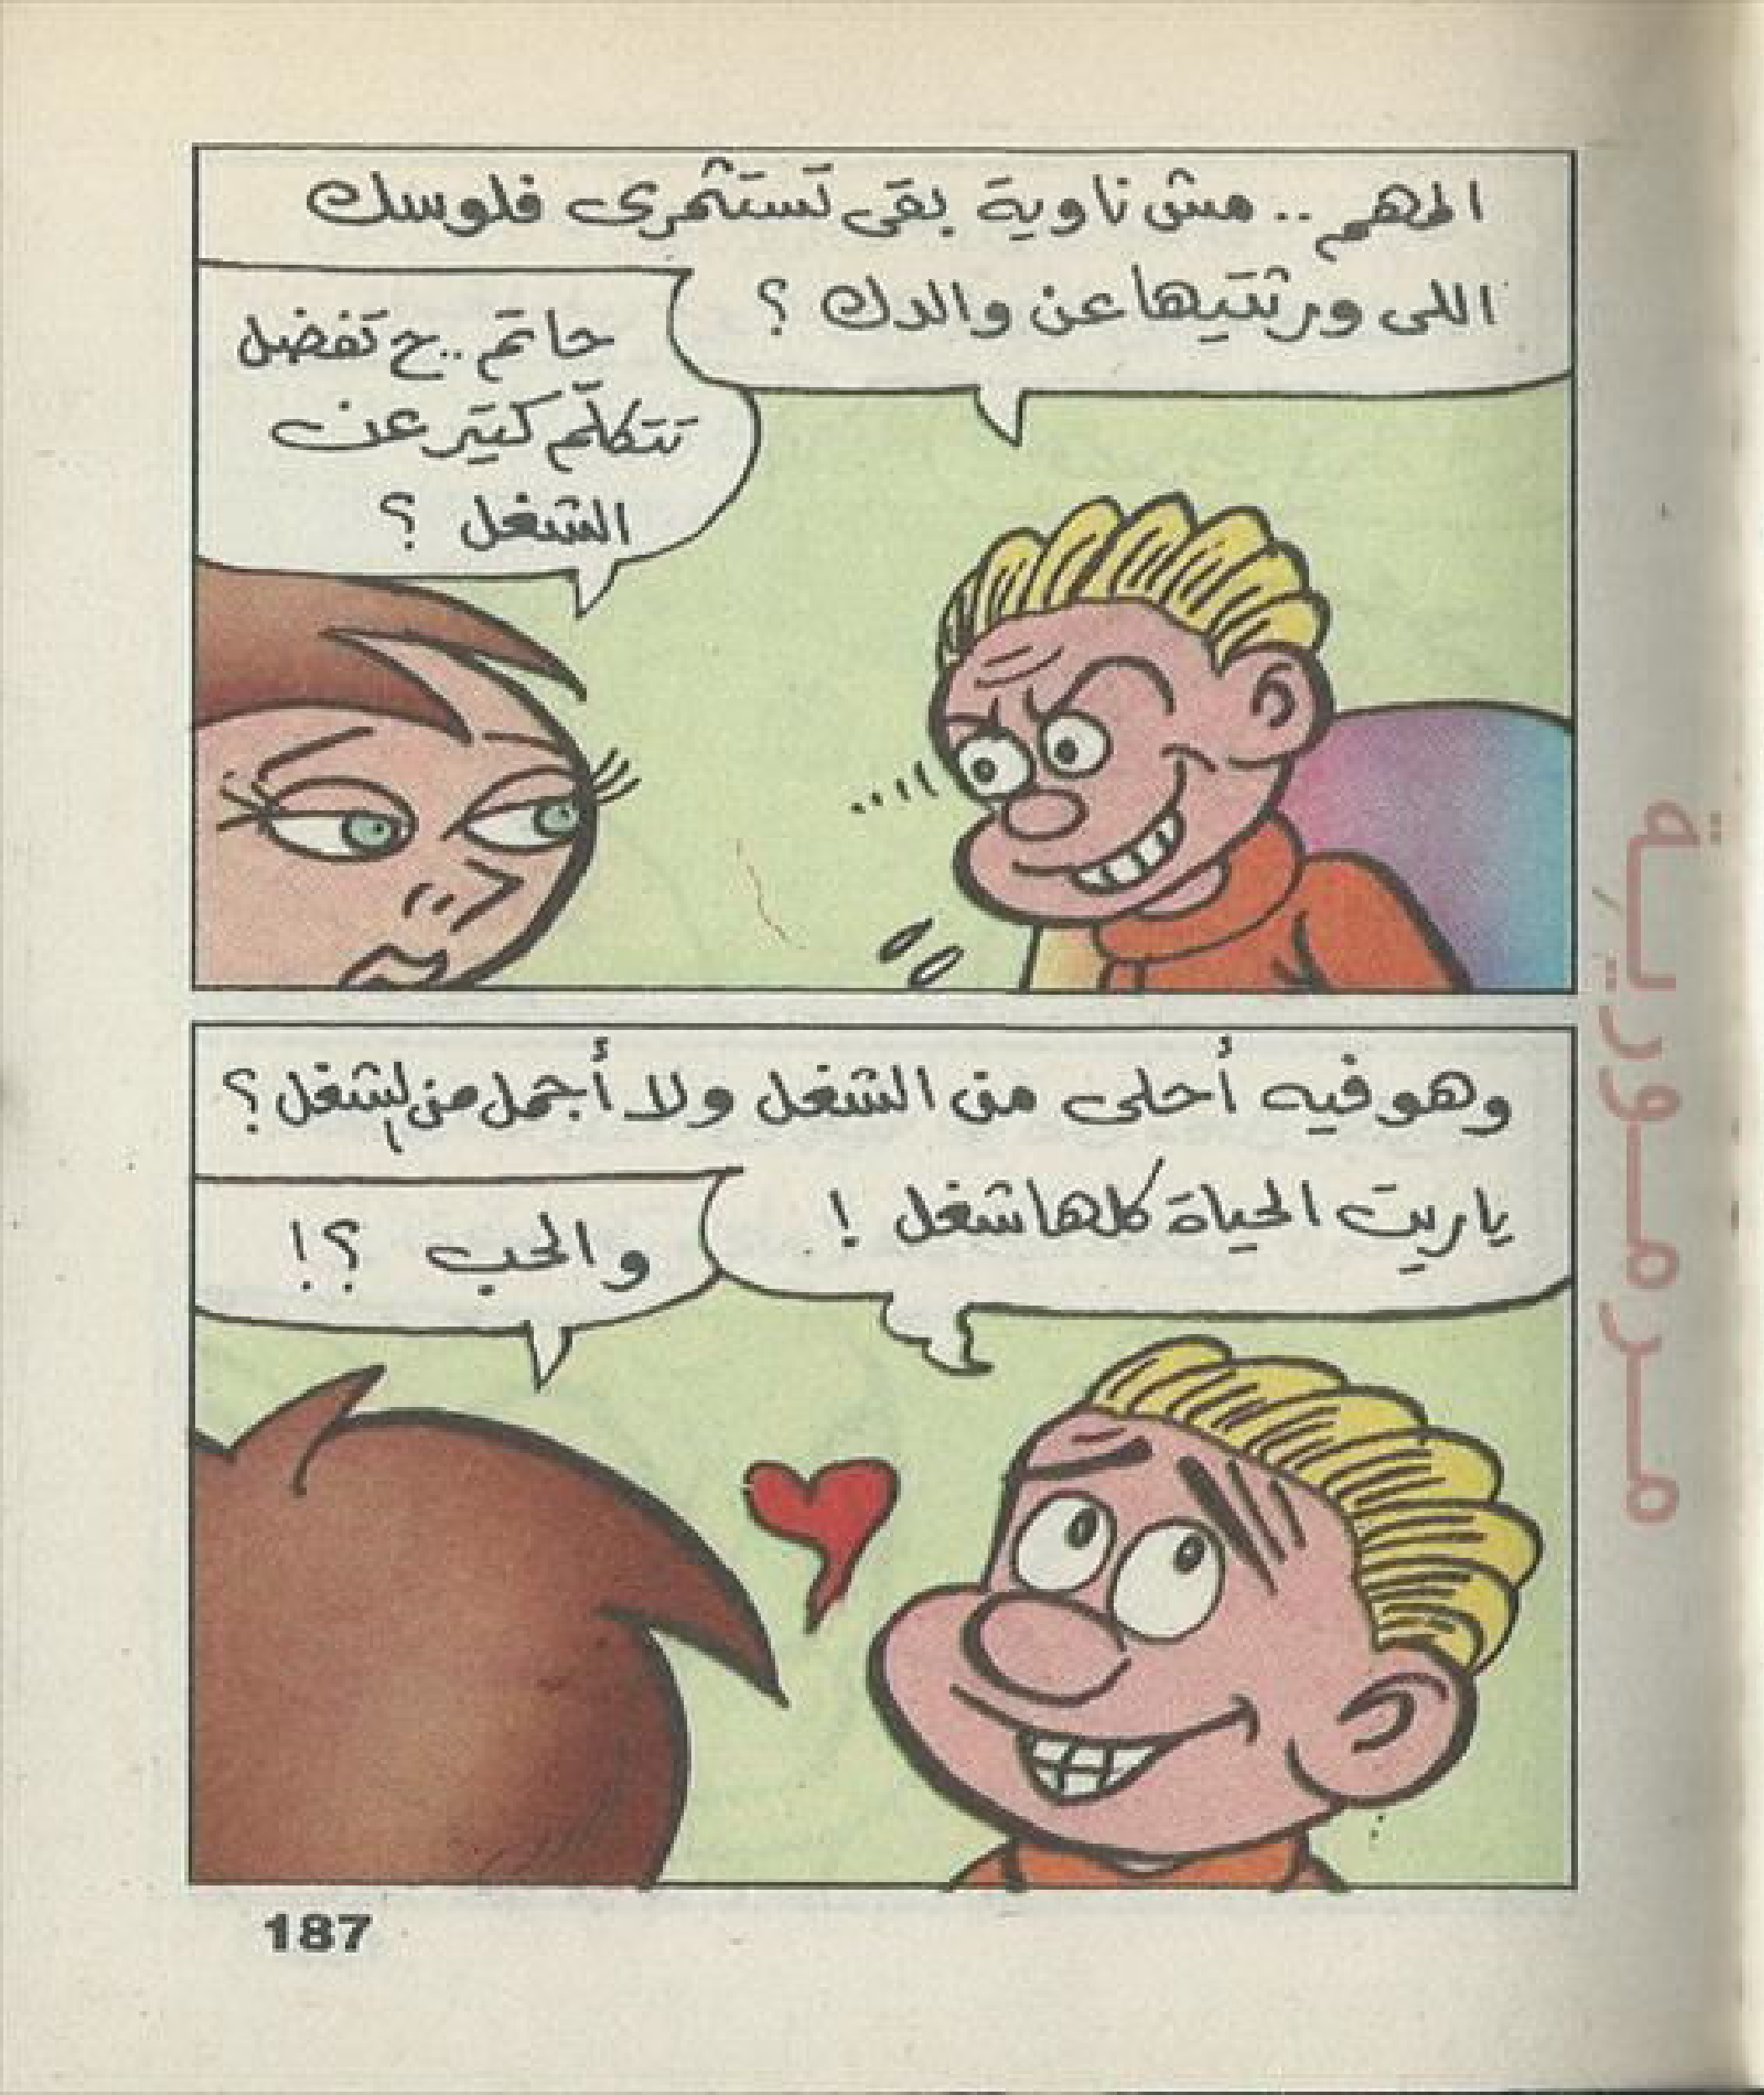 المهم .. مش ناوية بقى تستثمرى فلوسك
اللى ورثتيها عن والدك ؟
حاتم .. ح تفضل
تتكلّم كتير عن
الشغل ؟
وهو فيه أحلى من الشغل ولا أجمل من الشغل ؟
ياريت الحياة كلها شغل !
والحب ؟!
187
مرمورية